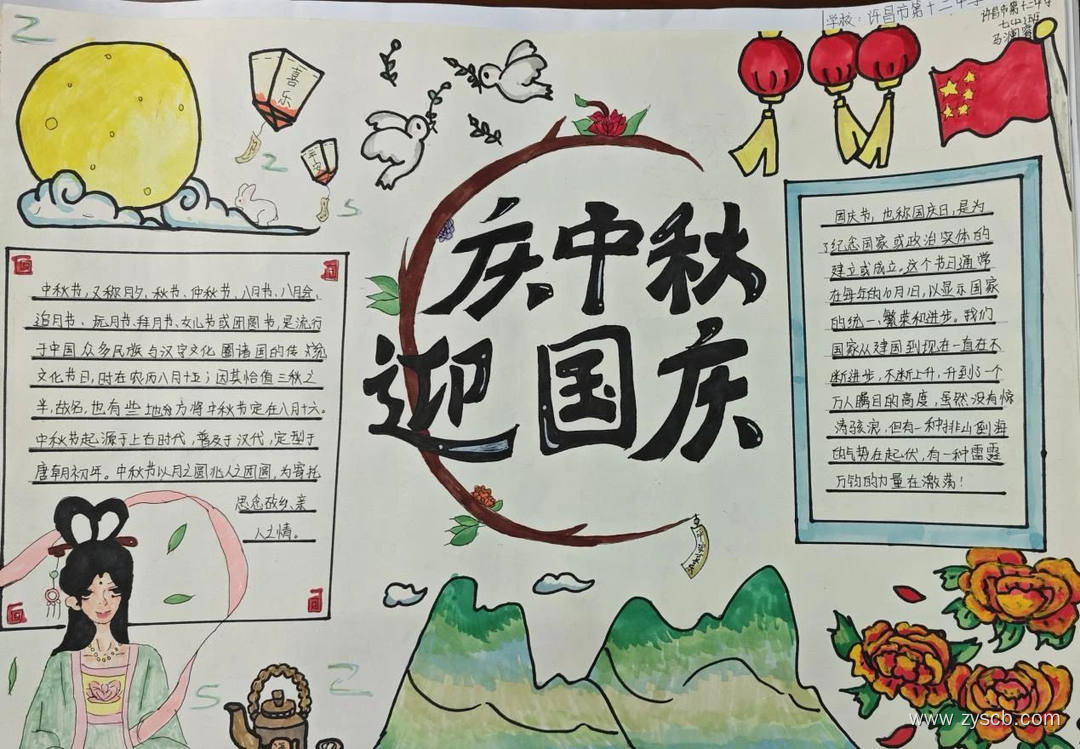 学校:许昌市第十二中学
许昌市第十二中学
喜乐
平安
庆中秋
迎国庆
中秋节,又称月夕、秋节、仲秋节、八月节、八月会、
追月节、玩月节、拜月节、女儿节或团圆节,是流行
于中国众多民族与汉字文化圈诸国的传统
文化节日,时在农历八月十五;因其恰值三秋之
半,故名,也有些地方将中秋节定在八月十六。
中秋节起源于上古时代,普及于汉代,定型于
唐朝初年。中秋节以月之圆兆人之团圆,为寄托
思念故乡、亲
人之情。
国庆节,也称国庆日,是为
了纪念国家或政治实体的
建立或成立。这个节日通常
在每年的10月1日,以显示国家
的统一、繁荣和进步。我们
国家从建国到现在一直在不
断进步,不断上升,升到了一个
万人瞩目的高度,虽然没有惊
涛骇浪,但有一种排山倒海
的气势在起伏,有一种雷霆
万钧的力量在激荡!
www.zyscb.com